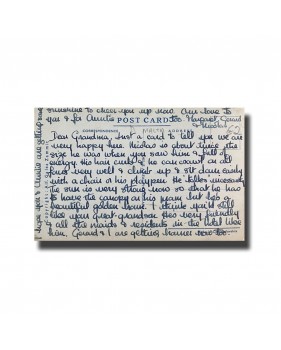 sunshine to cheer you up now. Our love to
you & for Auntie too. Margaret, Gerard
POST CARD
& Nicolas
CORRESPONDENCE
ADDRESS
Dear Grandma, Just a card to tell you we are
very happy here. Nicolas is about twice the
size he was when you saw him & full of
energy. His hair curls & he can crawl on all
fours very well & climb up & sit down easily
with a chair or his playpen. He talks
the sun is very strong now so that he has
to have the canopy on his pram but he's a
beautiful golden brown. I think you'd still
like your great grandson. He's very friendly
& all the maids & residents in the Hotel
him. Gerard & I are getting browner too.
hope you & Auntie are getting some